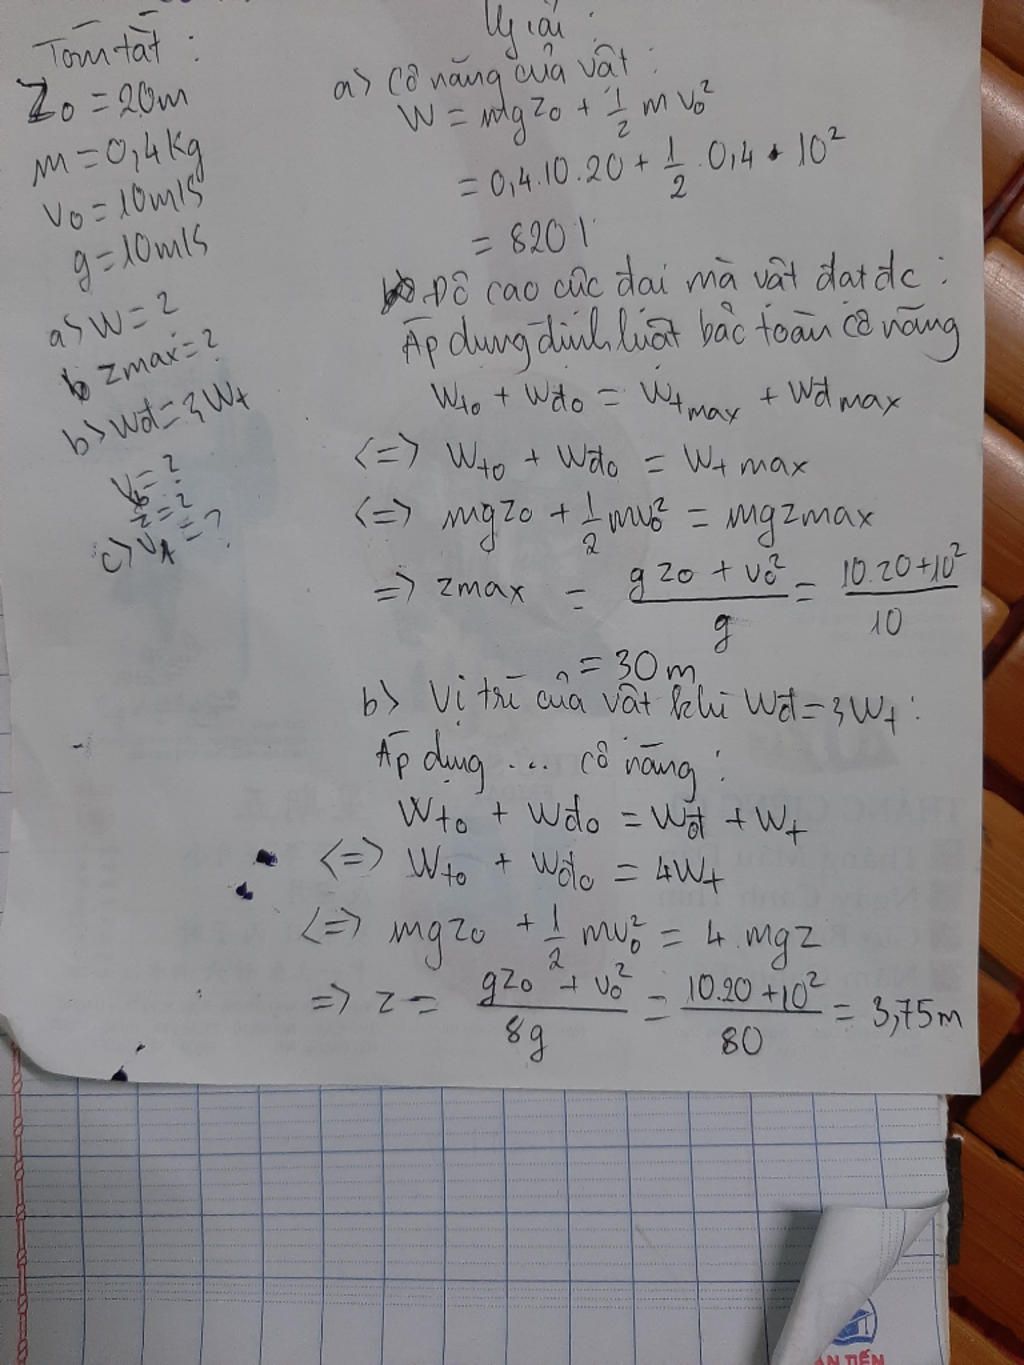 Tóm tắt :
Z₀ = 20m
m = 0,4kg
v₀ = 10m/s
g = 10m/s
a> W = ?
b zmax = ?
b> Wđ = 3Wt
v = ?
z = ?
c> vA = ?
Giải :
a> Cơ năng của vật :
W = mgz₀ + 1/2 m v₀²
= 0,4.10.20 + 1/2 . 0,4 . 10²
= 820 J
Độ cao cực đại mà vật đạt đc :
Áp dụng định luật bảo toàn cơ năng
Wt₀ + Wđ₀ = Wt max + Wđ max
<=> Wt₀ + Wđ₀ = Wt max
<=> mgz₀ + 1/2 mv₀² = mgzmax
=> zmax = (gz₀ + v₀²)/g = (10.20+10²)/10
= 30m
b> Vị trí của vật khi Wđ = 3Wt :
Áp dụng ... cơ năng :
Wt₀ + Wđ₀ = Wđ + Wt
<=> Wt₀ + Wđ₀ = 4Wt
<=> mgz₀ + 1/2 mv₀² = 4.mgz
=> z = (gz₀ + v₀²)/8g = (10.20+10²)/80 = 3,75m
AN TIẾN